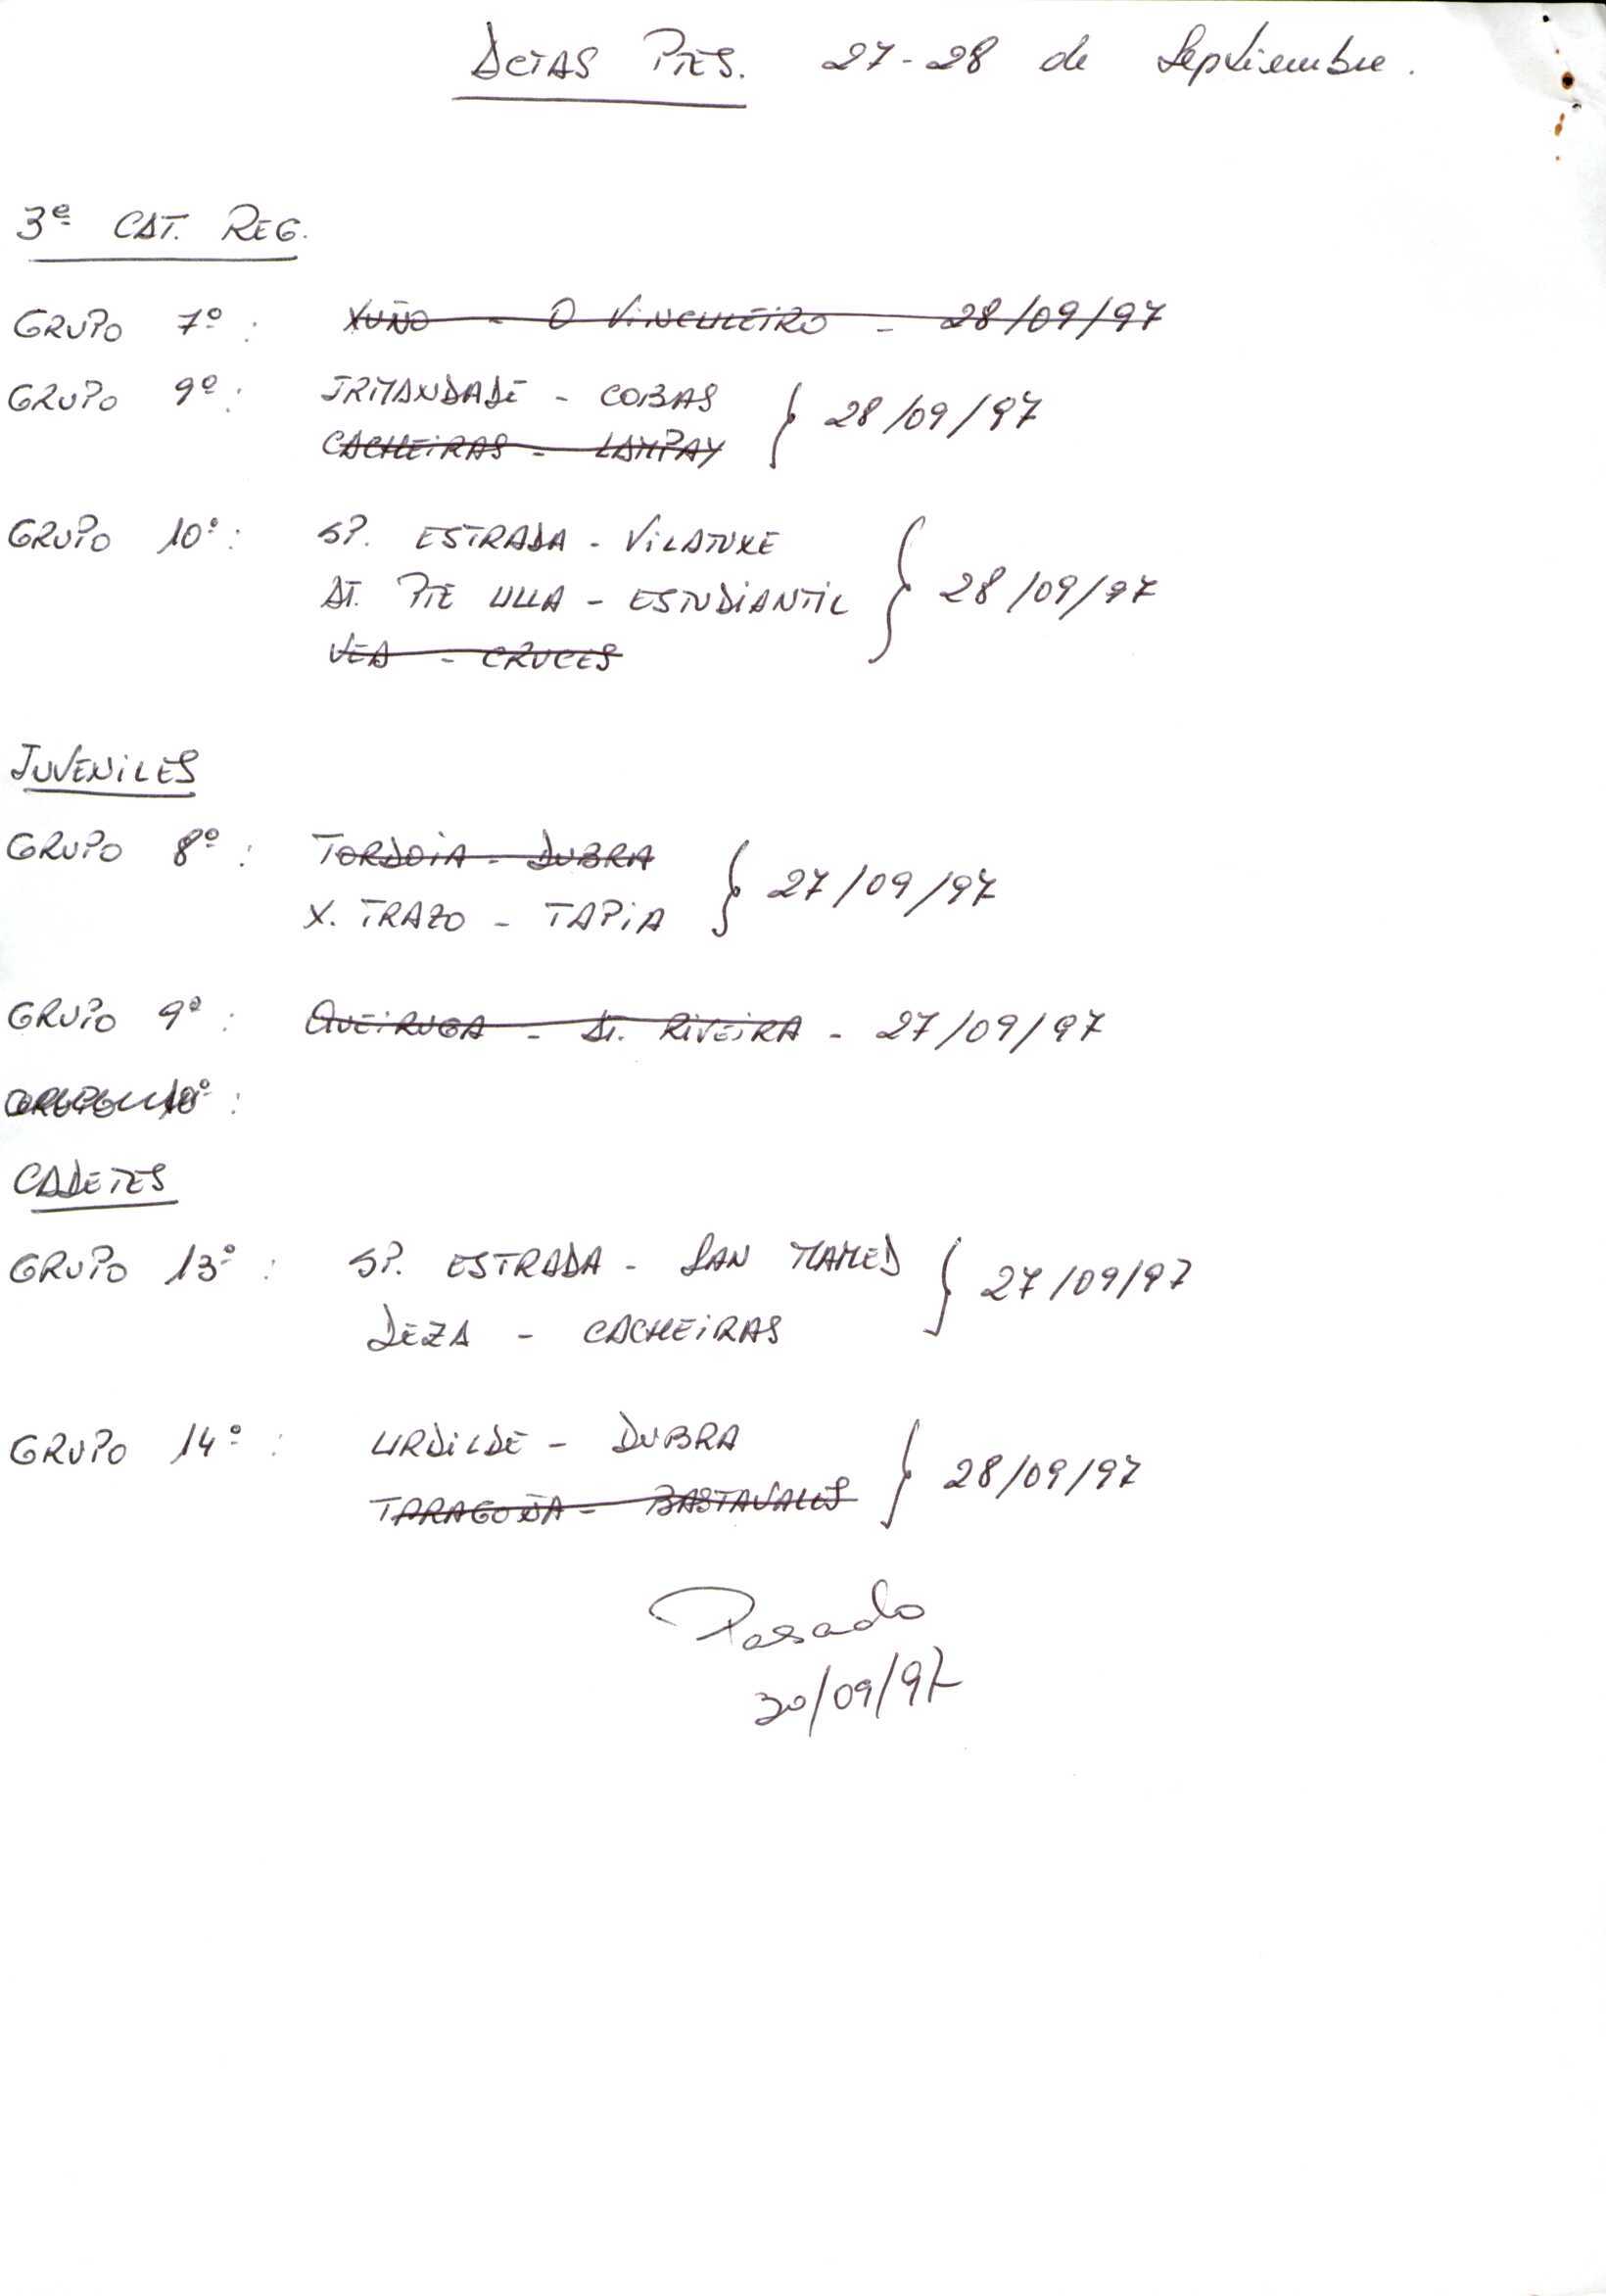 ACTAS PTES. 27-28 de Septiembre.
3ª CAT. REG.
GRUPO 7º: XUÑO - O VINCULEIRO - 28/09/97
GRUPO 9º: IRMANDADE - COBAS
CACHEIRAS - LAMPAY } 28/09/97
GRUPO 10º: SP. ESTRADA - VILATUXE
AT. PTE ULLA - ESTUDIANTIL } 28/09/97
VEA - CRUCES
JUVENILES
GRUPO 8º: TORDOIA - DUBRA
X. TRAZO - TAPIA } 27/09/97
GRUPO 9º: QUEIRUGA - AT. RIVEIRA - 27/09/97
CADETES
GRUPO 13º: SP. ESTRADA - SAN MAMED
DEZA - CACHEIRAS } 27/09/97
GRUPO 14º: URDILDE - DUBRA
TARAGOÑA - BASTAVALES } 28/09/97
Pasado
30/09/97